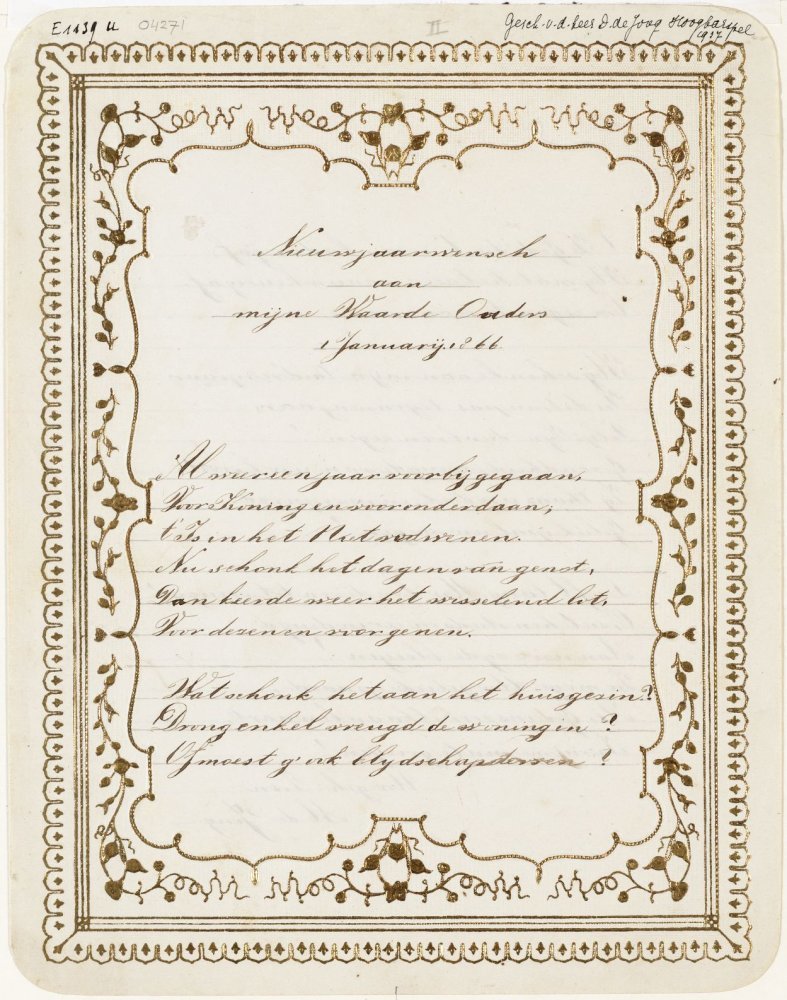 E1139 u 04271 II Gesch. v. d. heer D. de Jong Hoogkarspel
1937
Nieuwjaarwensch
aan
mijne Waarde Ouders
1 January 1866
Al weer een jaar voorbij gegaan,
Voor Koning en voor onderdaan;
t Is in het Niet verdwenen.
Nu schonk het dagen van genot,
Dan keerde weer het wisselend lot,
Voor dezen en voor genen.
Wat schonk het aan het huisgezin?
Drong enkel vreugd de woning in?
Of moest g' ook blijdschap derven?